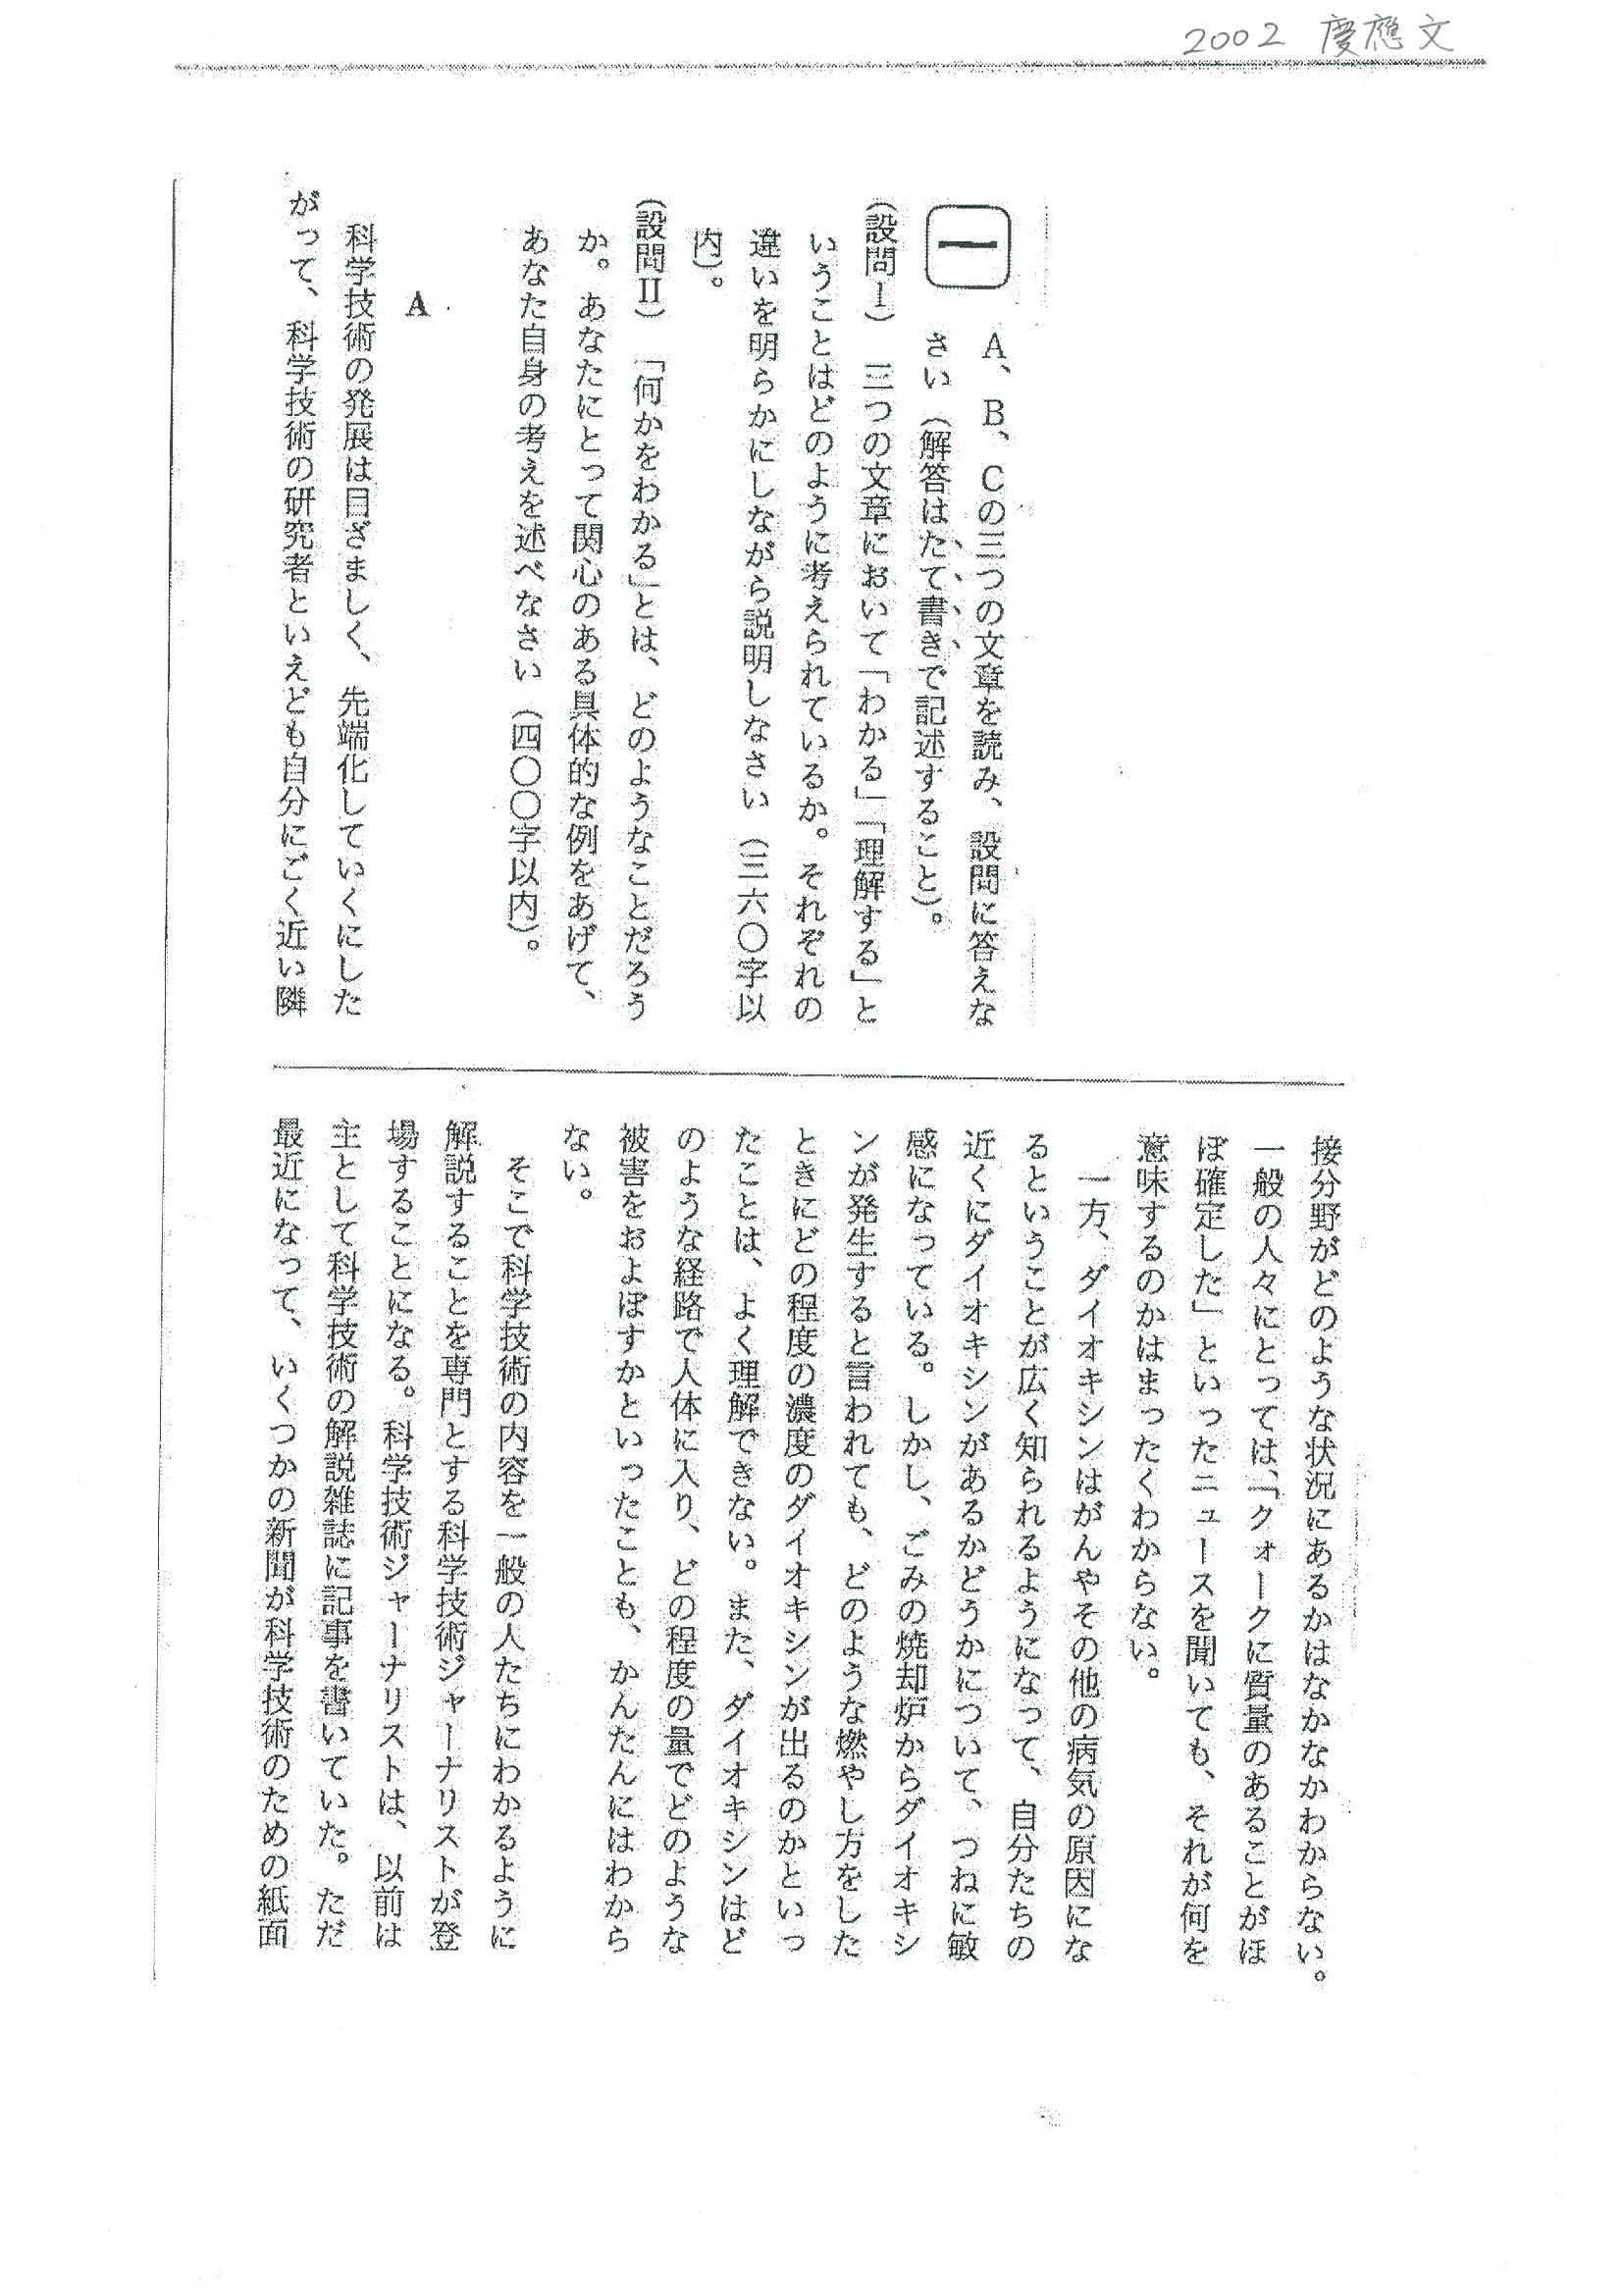 2002 慶應文
一
A、B、Cの三つの文章を読み、設問に答えな
さい（解答はたて書きで記述すること）。
（設問Ⅰ） 三つの文章において「わかる」「理解する」と
いうことはどのように考えられているか。それぞれの
違いを明らかにしながら説明しなさい（三六〇字以
内）。
（設問Ⅱ） 「何かをわかる」とは、どのようなことだろう
か。あなたにとって関心のある具体的な例をあげて、
あなた自身の考えを述べなさい（四〇〇字以内）。
A
科学技術の発展は目ざましく、先端化していくにした
がって、科学技術の研究者といえども自分にごく近い隣
接分野がどのような状況にあるかはなかなかわからない。
一般の人々にとっては、「クォークに質量のあることがほ
ぼ確定した」といったニュースを聞いても、それが何を
意味するのかはまったくわからない。
一方、ダイオキシンはがんやその他の病気の原因にな
るということが広く知られるようになって、自分たちの
近くにダイオキシンがあるかどうかについて、つねに敏
感になっている。しかし、ごみの焼却炉からダイオキシ
ンが発生すると言われても、どのような燃やし方をした
ときにどの程度の濃度のダイオキシンが出るのかといっ
たことは、よく理解できない。また、ダイオキシンはど
のような経路で人体に入り、どの程度の量でどのような
被害をおよぼすかといったことも、かんたんにはわから
ない。
そこで科学技術の内容を一般の人たちにわかるように
解説することを専門とする科学技術ジャーナリストが登
場することになる。科学技術ジャーナリストは、以前は
主として科学技術の解説雑誌に記事を書いていた。ただ
最近になって、いくつかの新聞が科学技術のための紙面